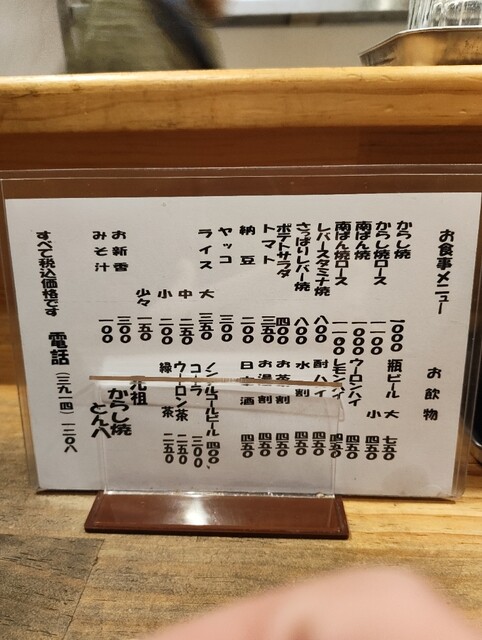 お食事メニュー
からし焼 一〇〇〇
からし焼ロース 一一〇〇
南ばん焼 一〇〇〇
南ばん焼ロース 一一〇〇
レバースタミナ焼 八〇〇
さっぱりレバー焼 八〇〇
ポテトサラダ 四〇〇
トマト 三五〇
納豆 二〇〇
ヤッコ 三〇〇
ライス 大 三五〇
中 二五〇
小 二〇〇
少々 一五〇
お新香 三〇〇
みそ汁 一〇〇
すべて税込価格です
お飲物
瓶ビール 大 七五〇
小 四五〇
ウーロンハイ 四五〇
レモンハイ 四五〇
酎ハイ 四五〇
水割 四五〇
お茶割 四五〇
お湯割 四五〇
日本酒 四五〇
ノンアルコールビール 四〇〇
コーラ 三〇〇
ウーロン茶 二五〇
緑茶 二五〇
元祖
からし焼
とん八
電話 (三九一四) 一二〇八